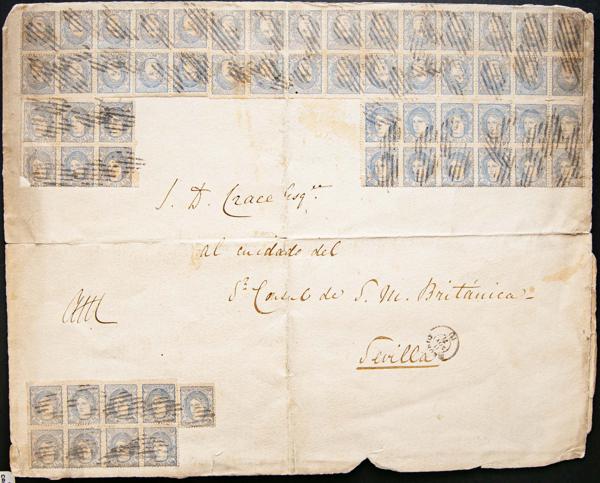 J. D. Crace Esqre
al cuidado del
Sr. Consul de S. M. Británica
Sevilla